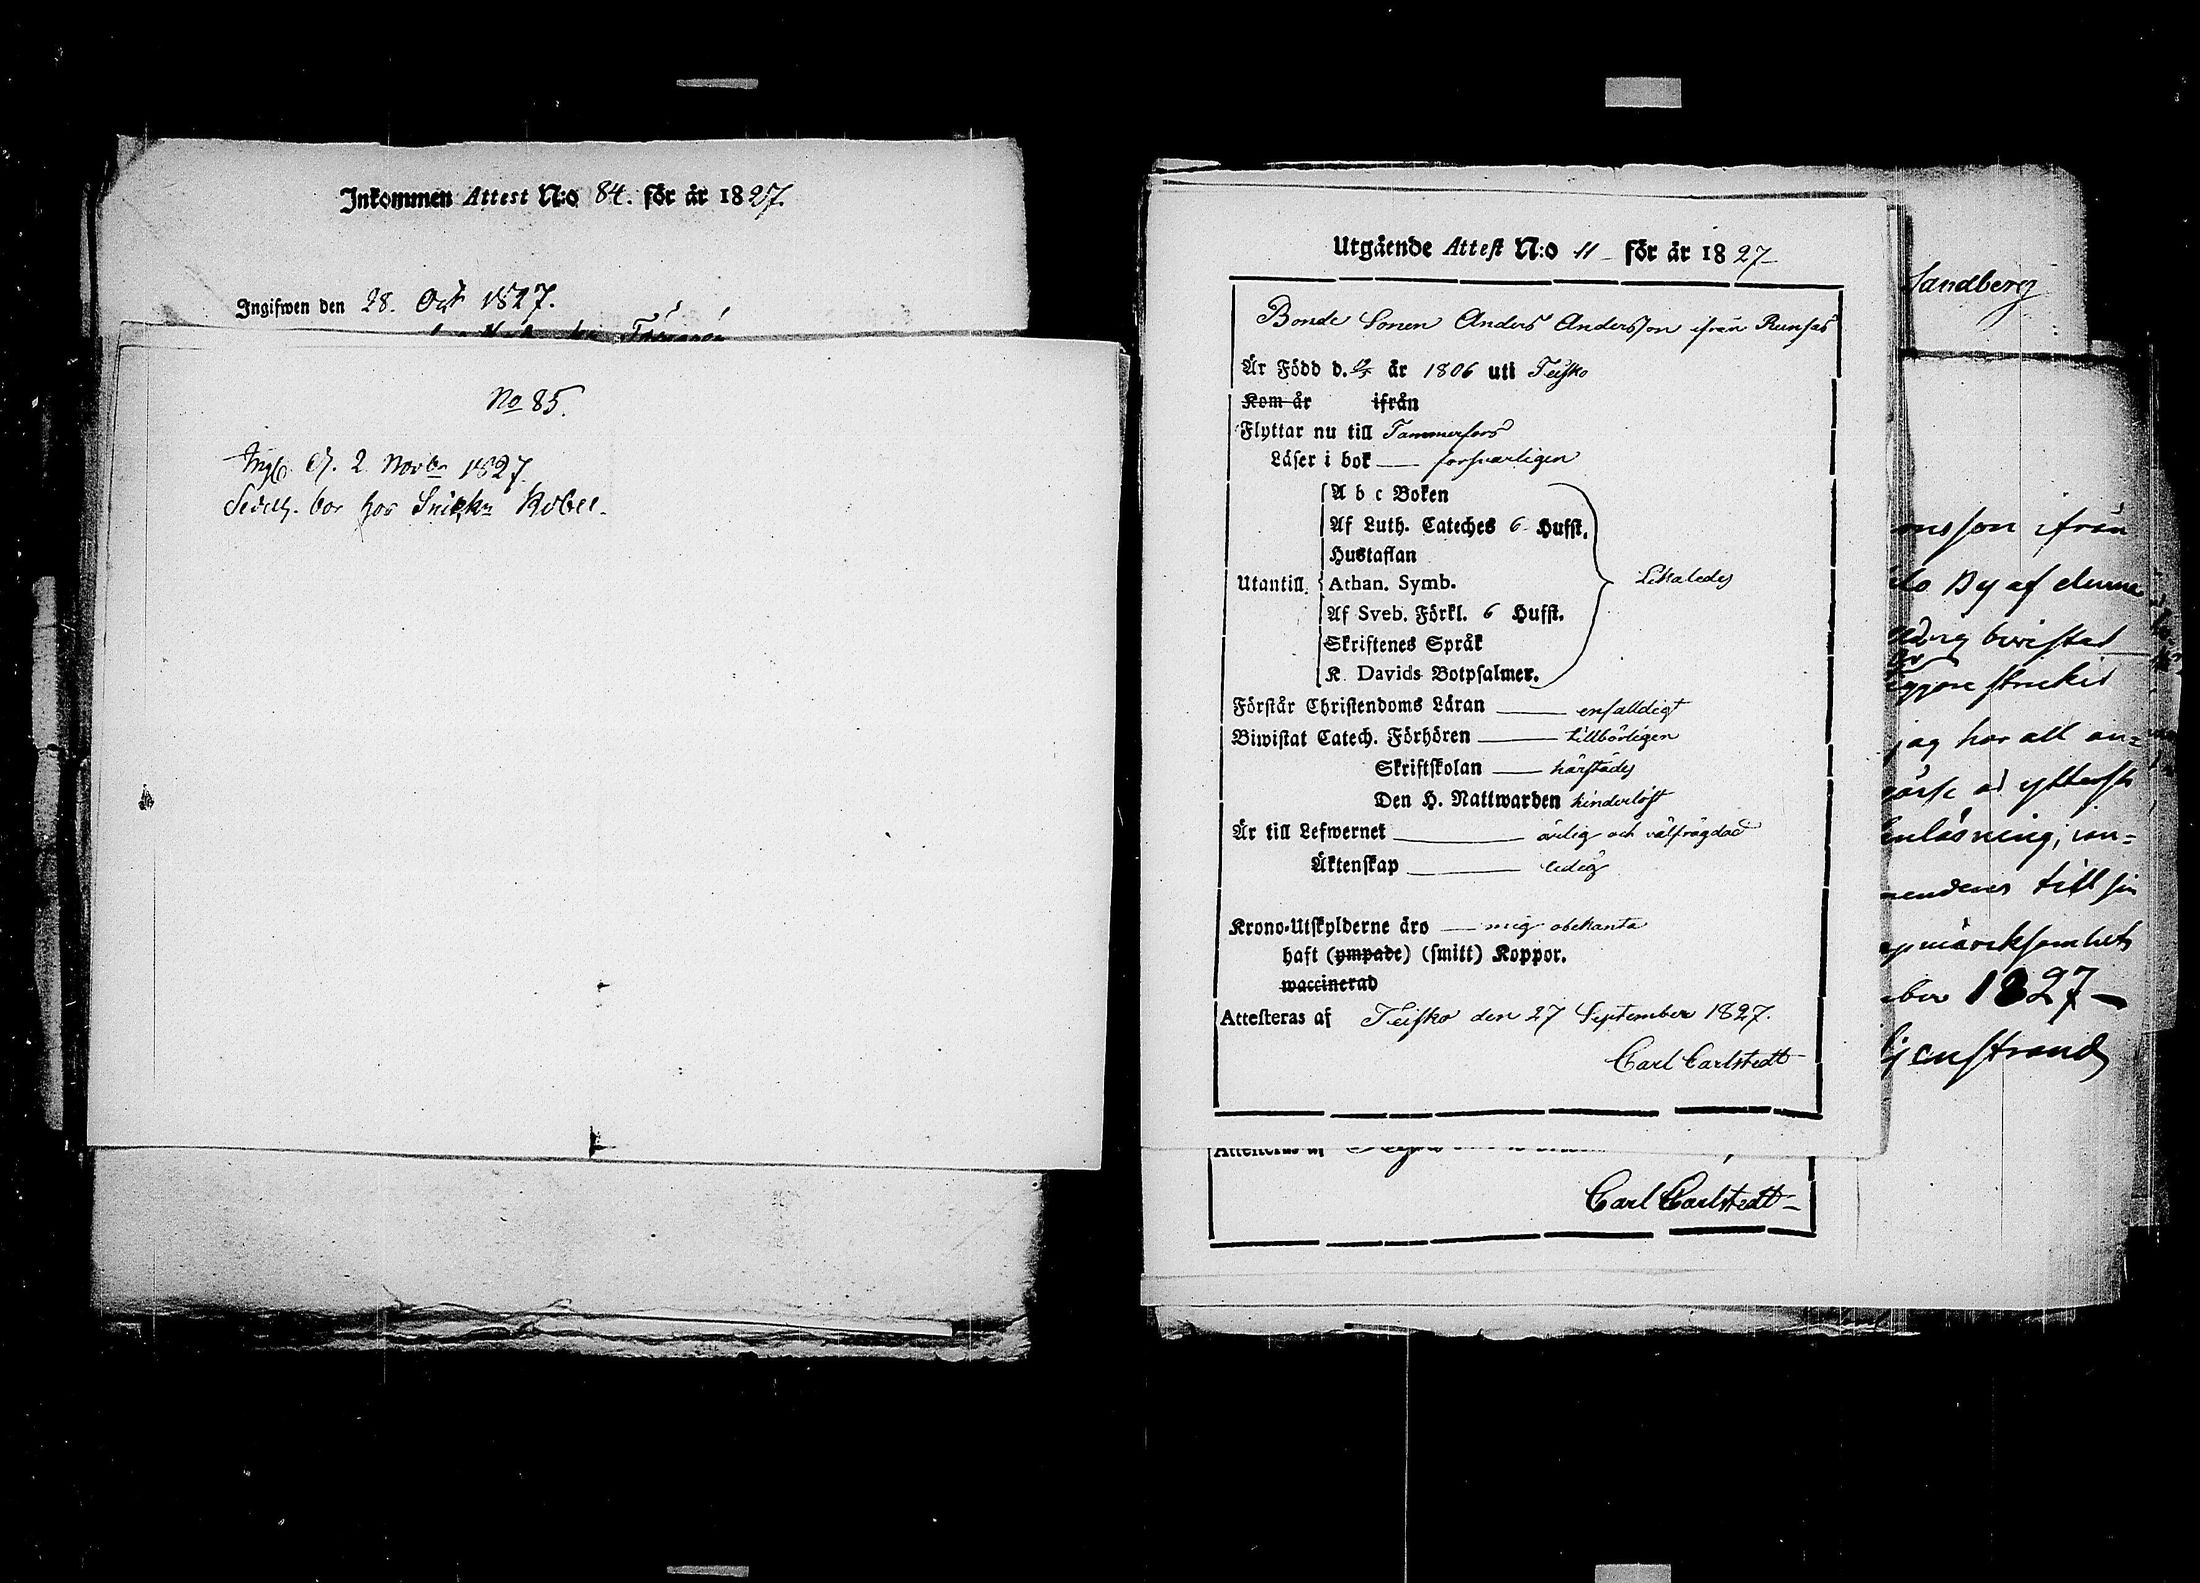 Inkommen Attest N:o 84. för år 1827.
Ingifwen den 28. Oct 1827.
No 85.
Ingb. d. 2 Novbr 1827.
bor hos Snickn
Utgående Attest N:o 11 för år 1827
Bonde Sonen Anders Andersson ifrån Runsas
Är Född d. år 1806 uti Teisko
Kom år ifrån
Flyttar nu till Tammerfors
Läser i bok — forsvarligen
A b c Boken
Af Luth. Cateches 6 Hufst.
Hustaflan
Utantill. Athan. Symb. Likaledes
Af Sveb. Förkl. 6 Hufst.
Skriftenes Språk
K. Davids Botpsalmer.
Förstår Christendoms Läran — enfalldigt
Biwistat Catech. Förhören — tillbörligen
Skriftskolan — härstädes
Den H. Nattwarden hinderlöst
Är till Lefwernet — ärlig och välfrägdad
Äktenskap — ledig
Krono-Utskylderne äro — mig obekanta
haft (ympade) (smitt) Koppor.
waccinerad
Attesteras af Teisko den 27 September 1827.
Carl Carlstedt
Attesteras af
Carl Carlstedt
Sandberg
onsson ifrån
By af denna
biwistat
jag har all an=
inläsning; inn=
till sin
pmärksamhets
ber 1827